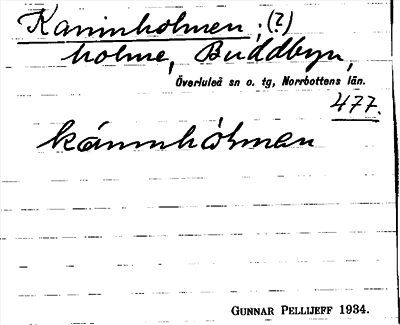 Kaninholmen; (?)
holme, Buddbyn,
Överluleå sn o. tg, Norrbottens län.
477.
kánnhòlman
GUNNAR PELLIJEFF 1934.